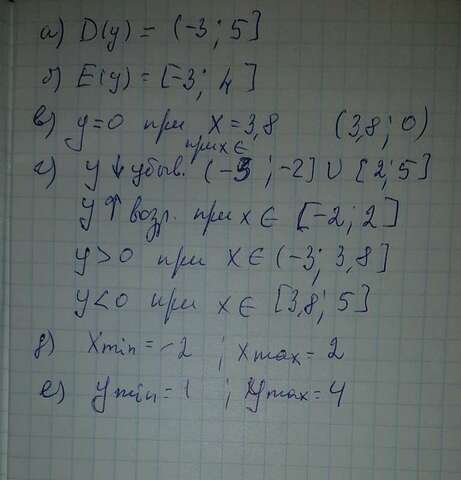 а) D(y) = (-3; 5]
б) E(y) = [-3; 4]
в) y=0 при x=3,8 (3,8; 0)
при x∈
г) y↓ убыв. (-3; -2] ∪ [2; 5]
y↑ возр. при x∈ [-2; 2]
y>0 при x∈ (-3; 3,8]
y<0 при x∈ [3,8; 5]
д) xmin = -2 ; xmax = 2
е) ymin = 1 ; ymax = 4